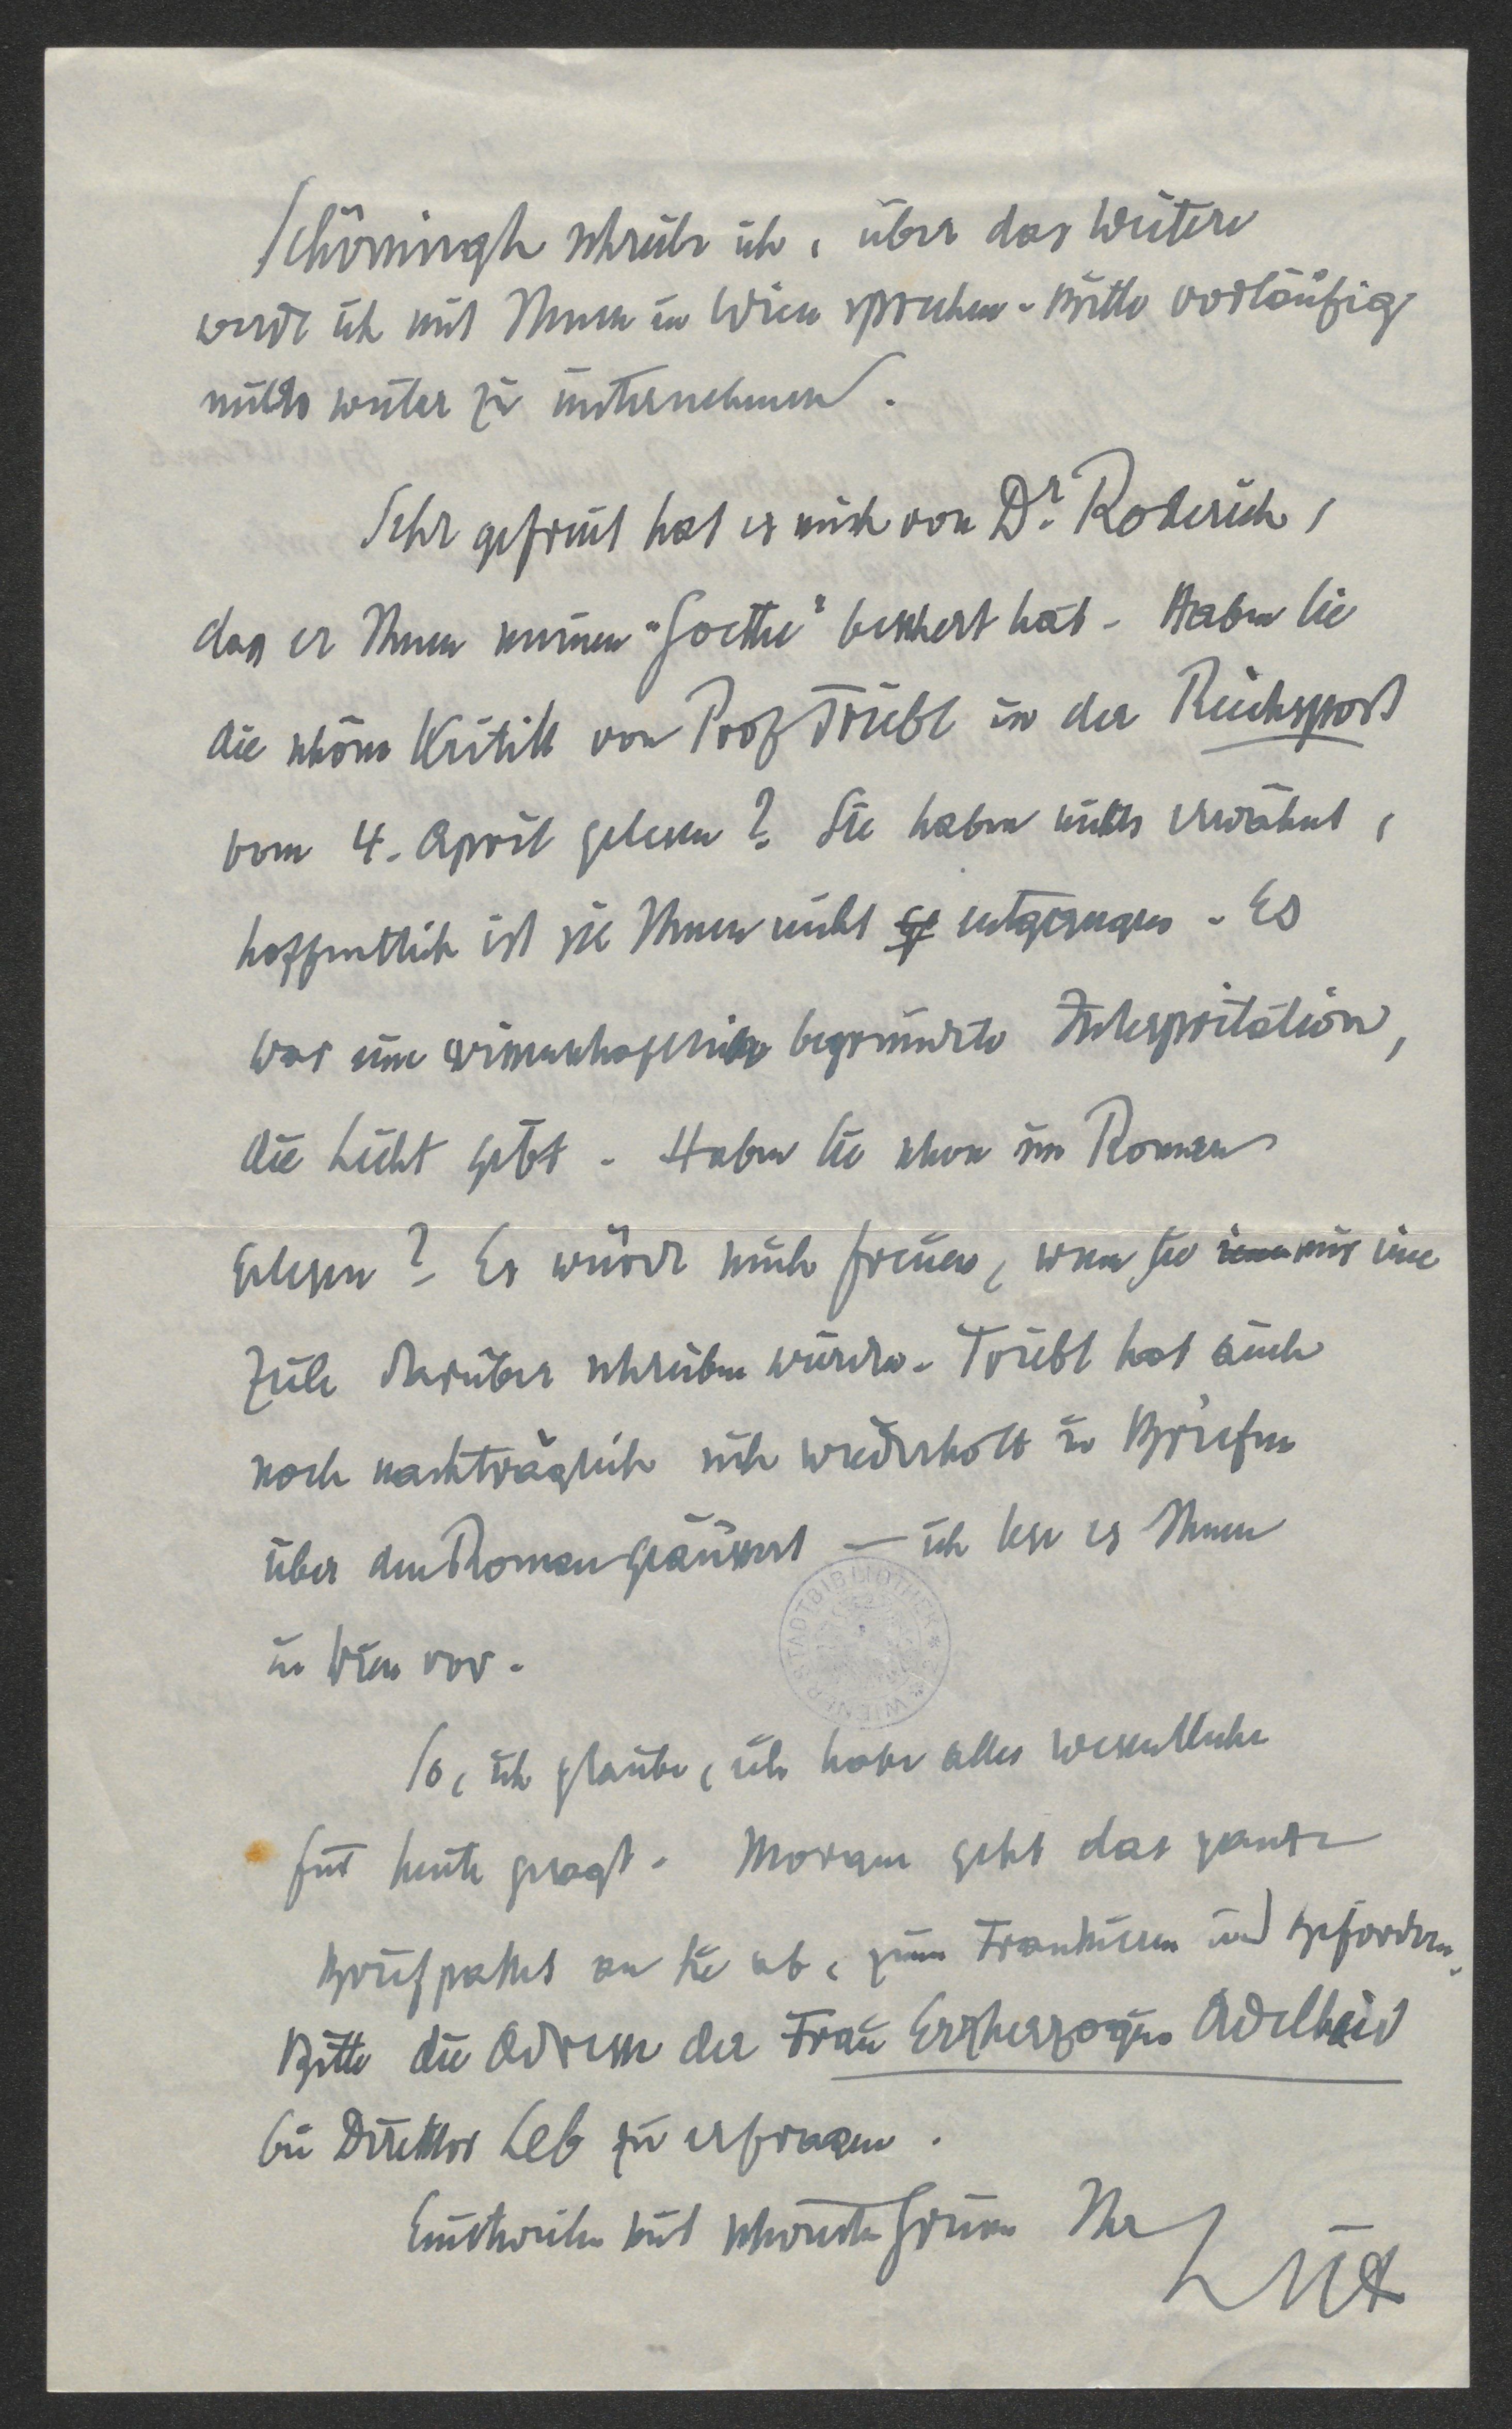 Schöningh schreibe ich, über das Weitere
werde ich mit Ihnen in Wien sprechen. Bitte vorläufig
nichts weiter zu unternehmen.
Sehr gefreut hat es mich von Dr. Roderich,
dass er Ihnen meinen "Goethe" beschert hat. Haben Sie
die schöne Kritik von Prof Triebl in der Reichspost
vom 4. April gelesen? Sie haben nichts erwähnt,
hoffentlich ist sie Ihnen nicht ge entgangen. Es
war eine wissenschaftlich begründete Interpretation,
die Licht gibt. Haben Sie schon im Roman
gelesen? Es würde mich freuen, wenn Sie mir eine
Zeile darüber schreiben würden. Triebl hat auch
noch nachträglich sich wiederholt in Briefen
über den Roman geäussert — ich lese es Ihnen
in Wien vor.
WIENER STADTBIBLIOTHEK
So, ich glaube, ich habe alles wesentliche
für heute gesagt. Morgen geht das ganze
Briefpaket an Sie ab, zum Frankieren und Befördern.
Bitte die Adresse der Frau Erzherzogin Adelheid
bei Direktor Leb zu erfragen.
Einstweilen mit schönsten Grüssen Ihr